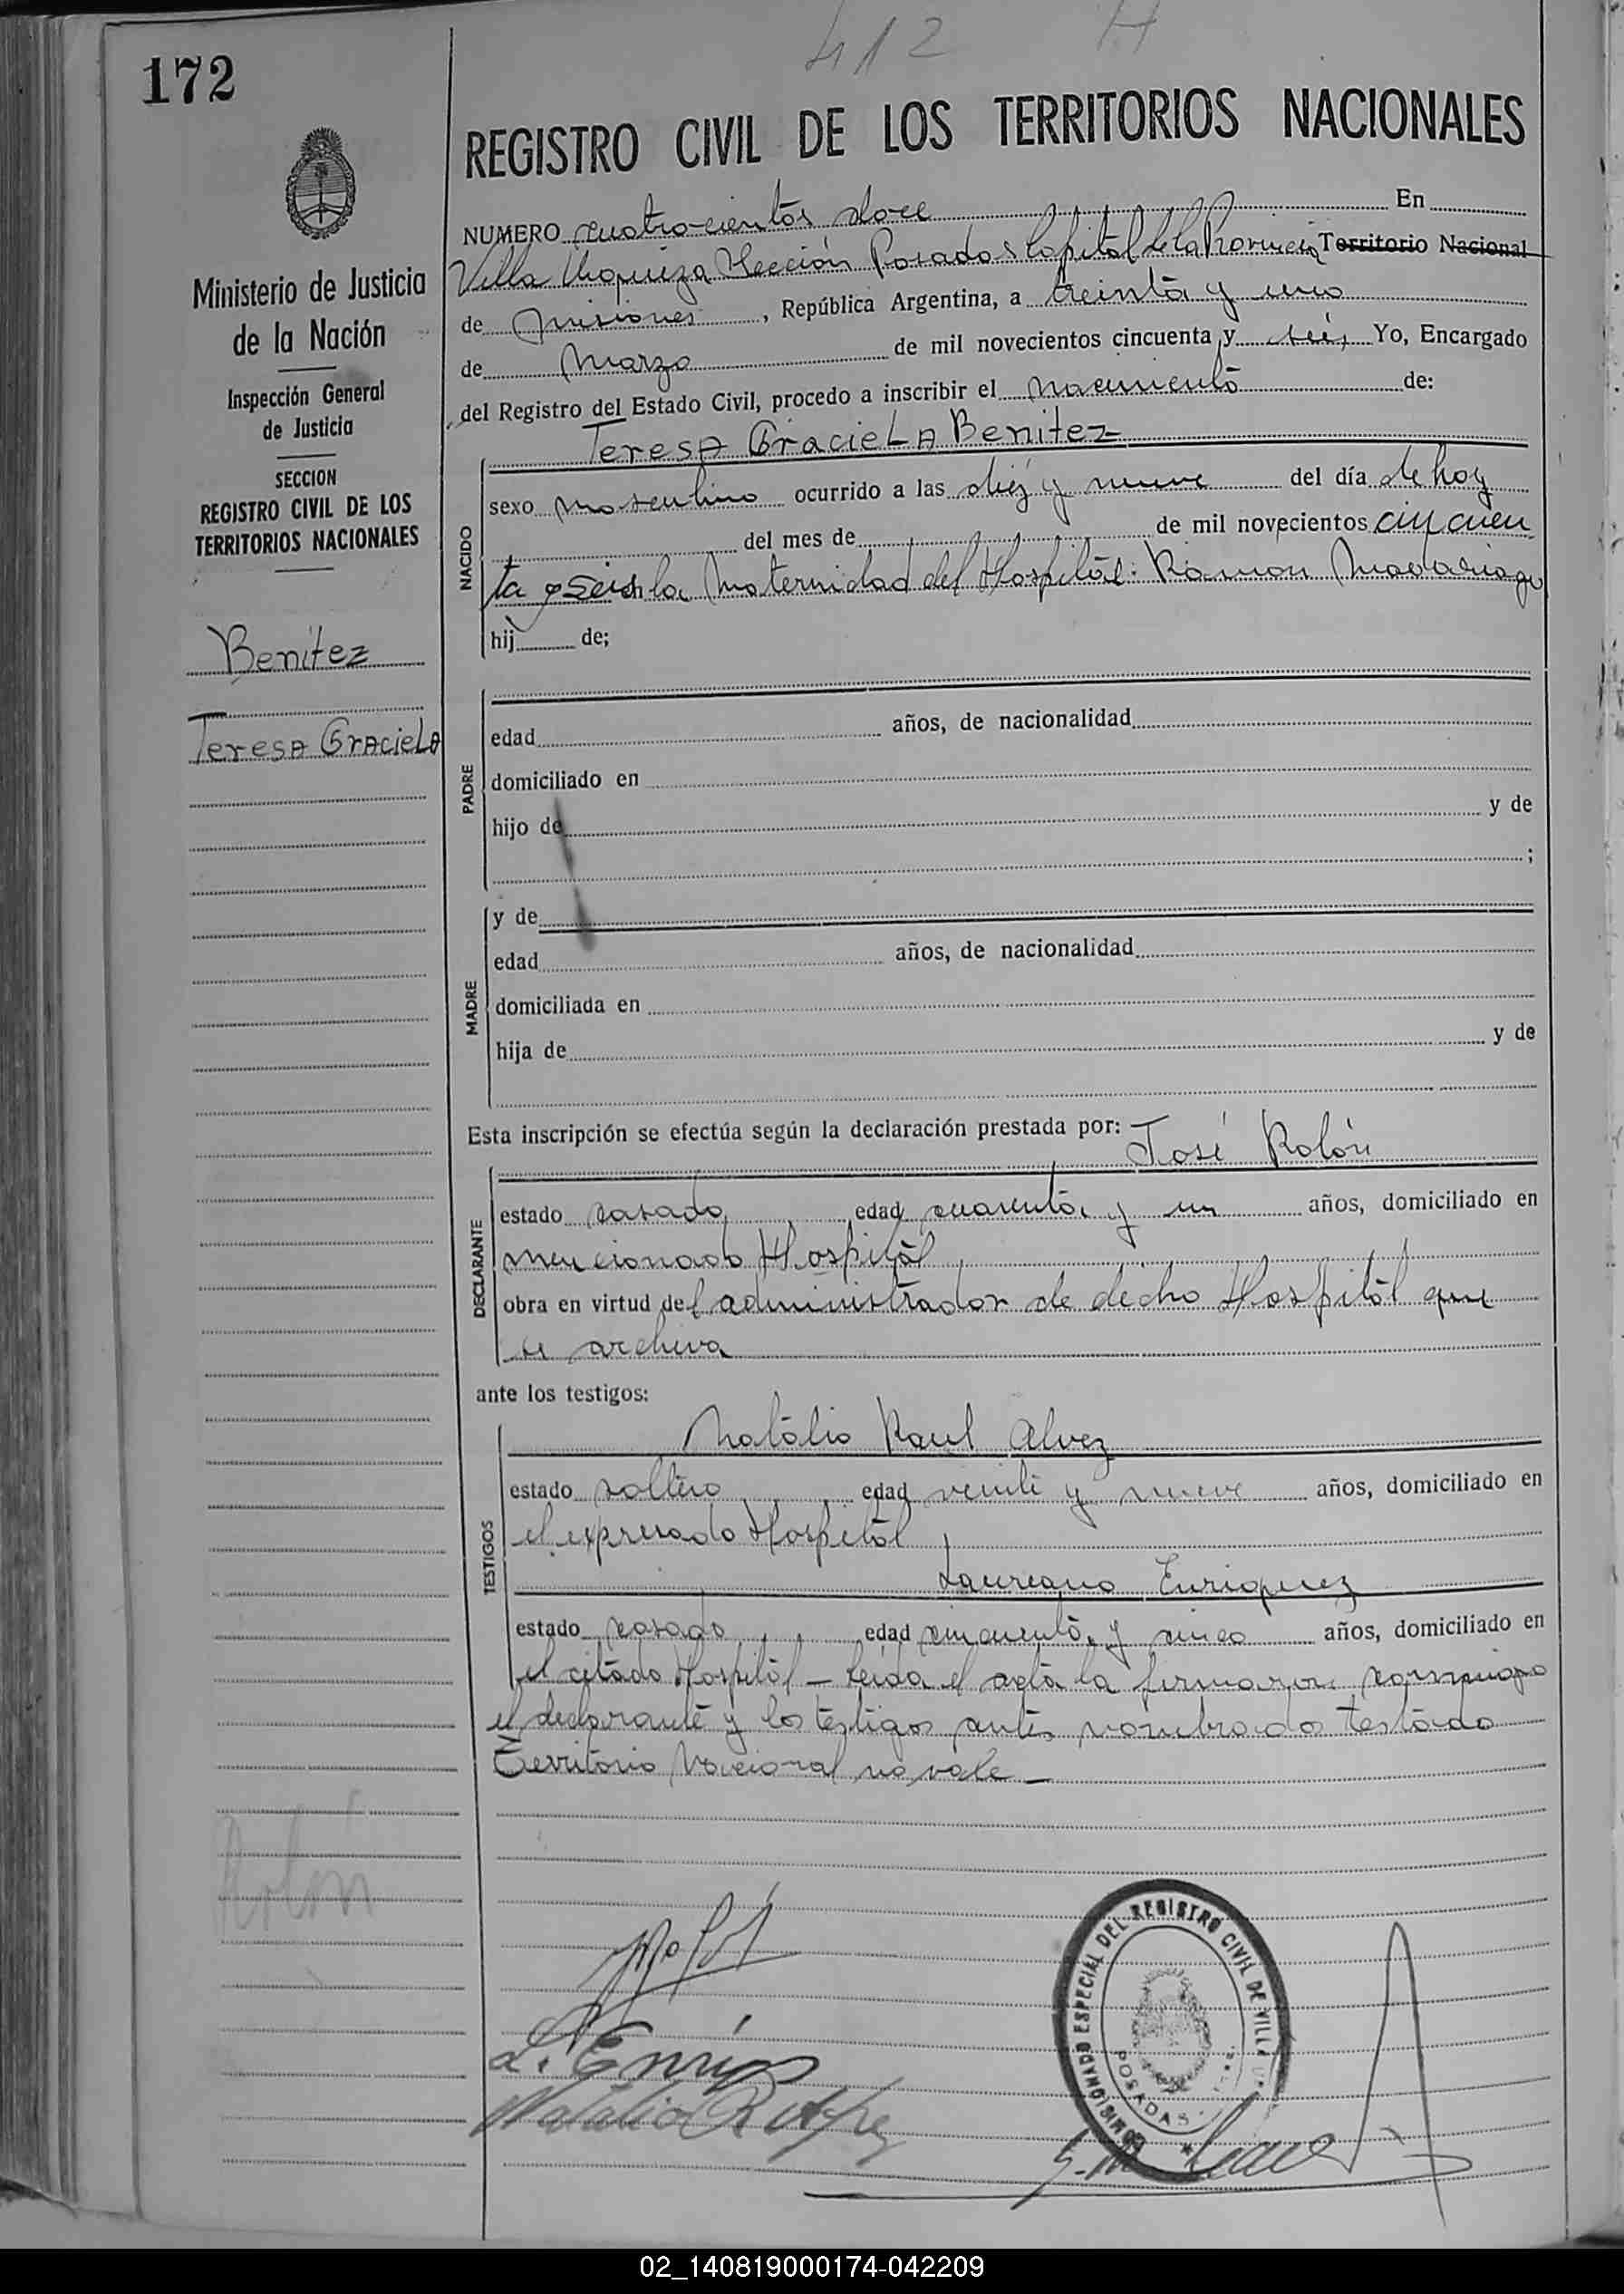 412 H
172
REGISTRO CIVIL DE LOS TERRITORIOS NACIONALES
NUMERO cuatrocientos doce En
Villa Urquiza Sección Posadas Capital de la Provincia Territorio Nacional
de Misiones, República Argentina, a treinta y uno
de Marzo de mil novecientos cincuenta y seis Yo, Encargado
del Registro del Estado Civil, procedo a inscribir el nacimiento de:
Teresa Graciela Benitez
NACIDO
sexo masculino ocurrido a las diez y nueve del día de hoy
del mes de de mil novecientos cincuen
ta y seis en la Maternidad del Hospital: Ramon Madariaga
hij de;
Ministerio de Justicia
de la Nación
Inspección General
de Justicia
SECCION
REGISTRO CIVIL DE LOS
TERRITORIOS NACIONALES
Benitez
Teresa Graciela
PADRE
edad años, de nacionalidad
domiciliado en
hijo de y de
;
MADRE
y de
edad años, de nacionalidad
domiciliada en
hija de y de
Esta inscripción se efectúa según la declaración prestada por:
José Rolón
DECLARANTE
estado casado edad cuarenta y un años, domiciliado en
mencionado Hospital
obra en virtud del administrador de dicho Hospital que
se archiva
ante los testigos:
TESTIGOS
Natalio Raul Alvez
estado soltero edad veinte y nueve años, domiciliado en
el expresado Hospital
Laureano Enriquez
estado casado edad cincuenta y cinco años, domiciliado en
el citado Hospital – Leida el acta la firmaron conmigo
el declarante y los testigos antes nombrado testado
Territorio Nacional no vale –
Rolón
L. Enriq
Natalio R Alvez
COMISIONADO ESPECIAL DEL REGISTRO CIVIL DE VILLA
POSADAS
02_140819000174-042209